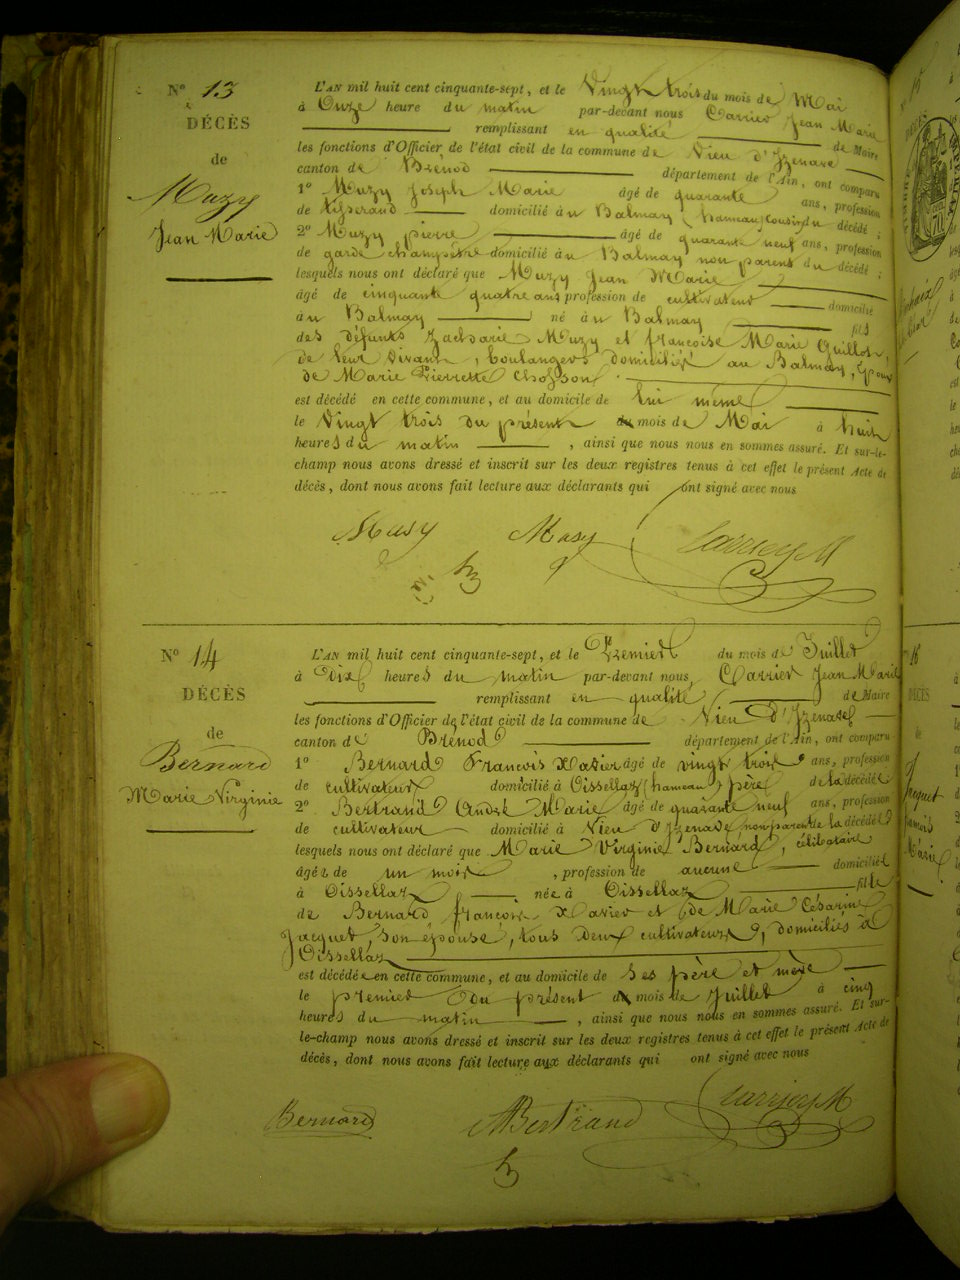 N° 13
DÉCÈS
de
Muzy
Jean Marie
L'AN mil huit cent cinquante-sept, et le Vingt trois du mois de Mai
à Onze heure du matin par-devant nous Carrier Jean Marie
remplissant en qualité de Maire
les fonctions d'Officier de l'état civil de la commune de Vieu d'Izenave
canton de Brénod département de l'Ain, ont comparu
1° Muzy Joseph Marie âgé de quarante ans, profession
de tisserand domicilié à u Balmay hameau, Cousin du décédé ;
2° Muzy pierre âgé de quarante neuf ans, profession
de garde champêtre domicilié à u Balmay non parent du décédé ;
lesquels nous ont déclaré que Muzy Jean Marie
âgé de cinquante quatre ans profession de cultivateur domicilié
à u Balmay né à u Balmay fils
des défunts Zacharie Muzy et françoise Marie Guillot,
de leur vivant, boulangers domiciliés au Balmay, Epoux
de Marie Pierrette
est décédé en cette commune, et au domicile de lui même
le Vingt trois du présent du mois de Mai à huit
heures du matin , ainsi que nous nous en sommes assuré. Et sur-le-
champ nous avons dressé et inscrit sur les deux registres tenus à cet effet le présent Acte de
décès, dont nous avons fait lecture aux déclarants qui ont signé avec nous
Musy Masy Carrier JM
N° 14
DÉCÈS
de
Bernard
Marie Virginie
L'AN mil huit cent cinquante-sept, et le Premier du mois de Juillet
à Dix heures du matin par-devant nous Carrier Jean Marie
remplissant en qualité de Maire
les fonctions d'Officier de l'état civil de la commune de Vieu d'Izenave
canton de Brénod département de l'Ain, ont comparu
1° Bernard François Xavier âgé de vingt trois ans, profession
de cultivateur domicilié à Oissellaz (hameau) père de la décédée
2° Bertrand André Marie âgé de quarante neuf ans, profession
de cultivateur domicilié à Vieu d'Izenave, non parent de la décédée
lesquels nous ont déclaré que Marie Virginie Bernard, célibataire
âgée de un mois , profession de aucune domiciliée
à Oissellaz née à Oissellaz fille
de Bernard françois Xavier et de Marie Césarine
Jacquet, son épouse, tous deux cultivateurs, domiciliés à
Oissellaz
est décédée en cette commune, et au domicile de ses père et mère
le premier du présent du mois de Juillet à cinq
heures du matin , ainsi que nous nous en sommes assuré. Et sur-
le-champ nous avons dressé et inscrit sur les deux registres tenus à cet effet le présent Acte de
décès, dont nous avons fait lecture aux déclarants qui ont signé avec nous
Bernard ABertrand Carrier JM